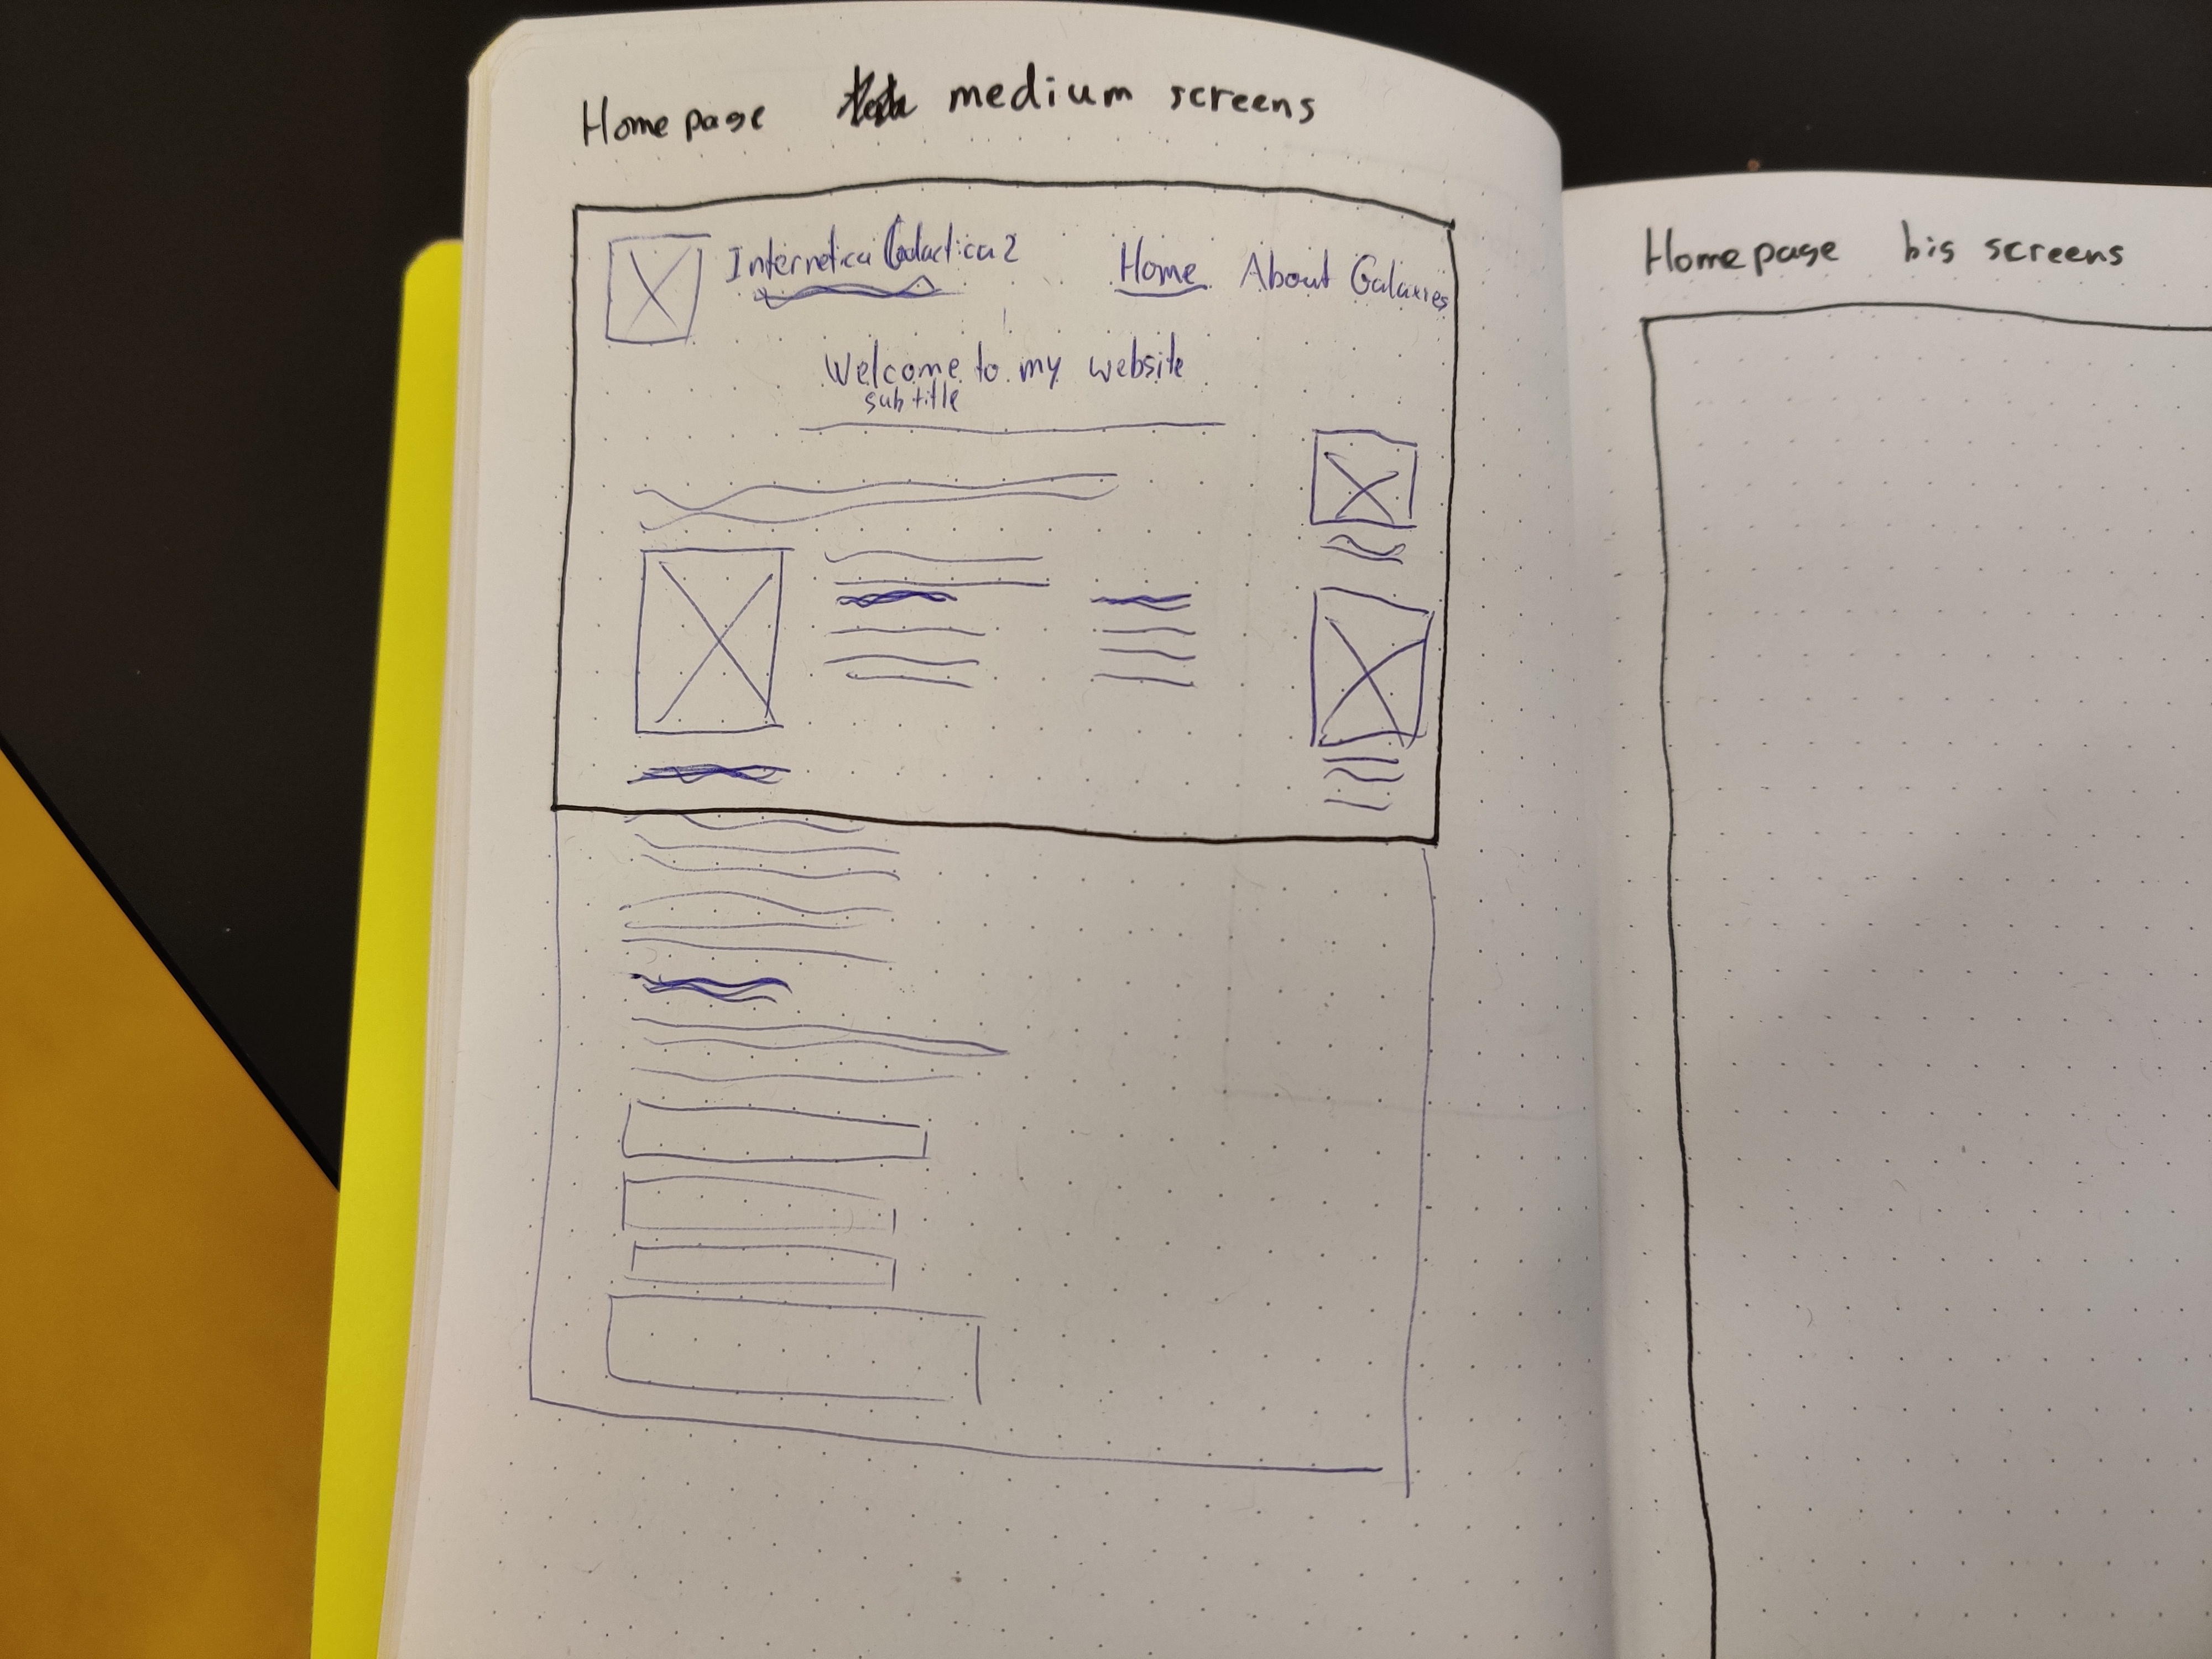 Homepage medium screens
Internetica Galactica 2 Home About Galaxies
Welcome to my website
subtitle
Homepage big screens